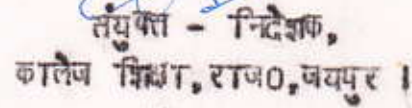 संयुक्त - निदेशक,
कालेज शिक्षा, राज0, जयपुर ।